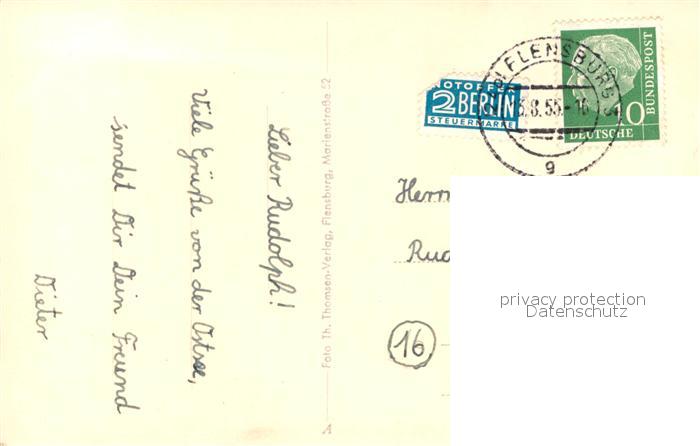 Lieber Rudolph!
Viele Grüße von der Ostsee,
sendet Dir Dein Freund
Dieter
Foto Th. Thomsen-Verlag, Flensburg, Marienstraße 52
A
NOTOPFER
2 BERLIN
STEUERMARKE
FLENSBURG
g
10
DEUTSCHE
BUNDESPOST
Herrn
Rud
16
privacy protection
Datenschutz